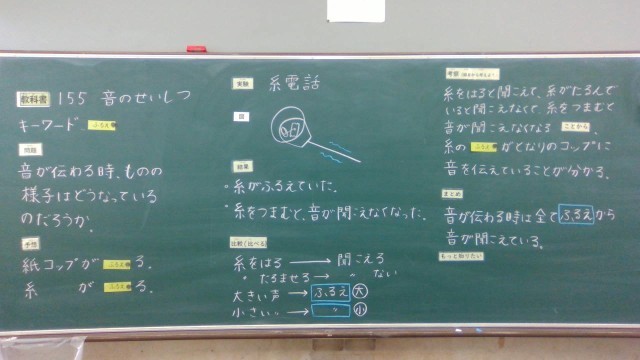 教科書 155 音のせいしつ
キーワード ふるえ
問題
音が伝わる時、ものの
様子はどうなっている
のだろうか。
予想
紙コップが ふるえ る。
糸 が ふるえ る。
実験 糸電話
図
結果
・糸がふるえていた。
・糸をつまむと、音が聞こえなくなった。
比較(比べる)
糸をはる → 聞こえる
〃 たるませる → 〃 ない
大きい声 → ふるえ 大
小さい〃 → 〃 小
考察
糸をはると聞こえて、糸がたるんで
いると聞こえなくて、糸をつまむと
音が聞こえなくなる ことから 、
糸の ふるえ がとなりのコップに
音を伝えていることが分かる。
まとめ
音が伝わる時は全て ふるえ から
音が聞こえている。
もっと知りたい